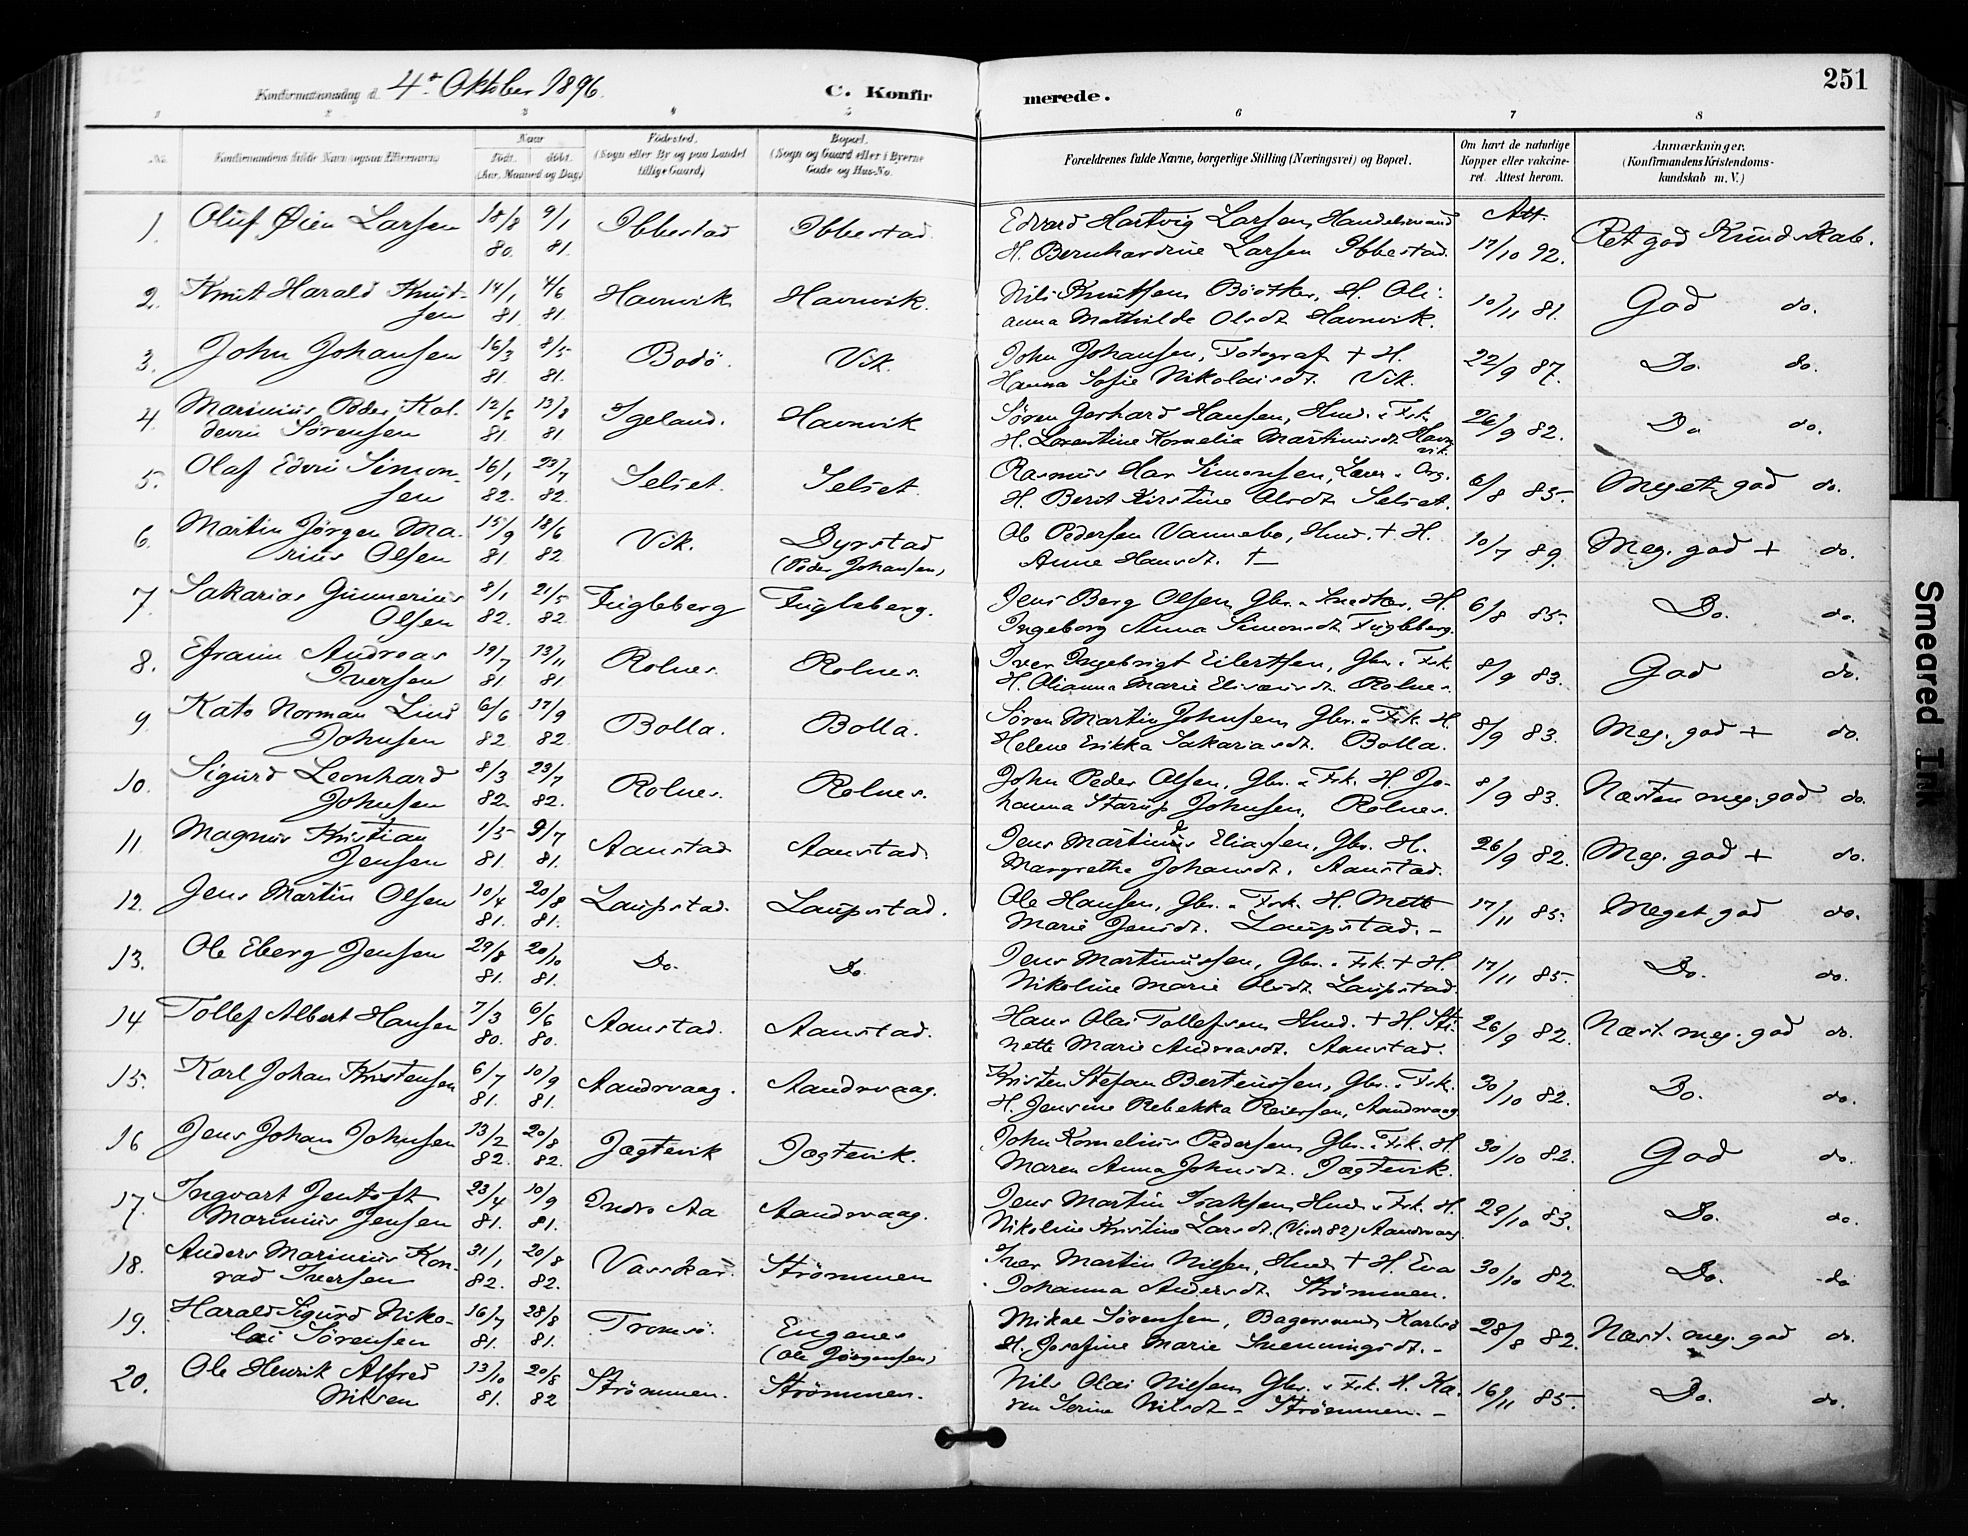 251
Konfirmationsdag d. 4de Oktober 1896.
C. Konfirmerede.
1 2 3 4 5 6 7 8
No. Konfirmandens fulde Navn (ogsaa Efternavn) Naar født. døbt. (Aar, Maaned og Dag) Fødested. (Sogn eller By og paa Landet tillige Gaard) Bopæl. (Sogn og Gaard eller i Byerne Gade og Hus-No. Forældrenes fulde Navne, borgerlige Stilling (Næringsvei) og Bopæl. Om havt de naturlige Kopper eller vakcineret. Attest herom. Anmærkninger. (Konfirmandens Kristendomskundskab m. V.)
1. Oluf Øien Larsen 18/8 80. 9/1 81. Ibbestad Ibbestad. Edvard Hartvig Larsen, Handelsmand
H. Bernhardine Larsen Ibbestad. Att. 17/10 92. Ret god Kundskab.
2. Knut Harald Knutsen 14/1 81. 4/6 81. Havnvik Havnvik. Nils Knutsen Bödker, H. Olianna Mathilde Olsdt. Havnvik. 10/11 81. God do.
3. John Johansen 16/3 81. 8/5 81. Bodö. Vik. John Johansen, Fotograf + H.
Hanna Sofie Nikolaisdt. Vik. 22/9 87. Do. do.
4. Marinius Peder Kaldevin Sørensen 12/5 81. 13/8 81. Igeland. Havnvik Søren Gerhard Hansen, Hmd. & Fsk.
H. Lorentine Kornelia Martinusdt. Havnvik. 26/9 82. Do do.
5. Olaf Edvin Simonsen 16/1 82. 23/7 82. Selset. Selset. Rasmus Simonsen, Lærer & Org.
H. Berit Kirstine Olsdt. Selset. 6/8 85. Meget god do.
6. Martin Jørgen Marius Olsen 15/9 81. 18/6 82 Vik. Dyrstad
(Peder Johansen) Ole Pedersen Vannebo, Hmd. + H.
Anne Hansdt. + 10/7 89. Meg. god + do.
7. Sakarias Gunnerius Olsen 8/1 82. 21/5 82. Fugleberg Fugleberg. Jens Berg Olsen, Gbr. & Snedker, H.
Ingeborg Anna Simonsdt. Fugleberg. 6/8 85. Do. do.
8. Efraim Andreas Iversen 19/7 81 13/11 81 Rolnes. Rolnes. Iver Ingebrigt Eilertsen, Gbr. & Fsk.
H. Olianna Marie Eliseusdt. Rolnes. 8/9 83. God do.
9. Kato Norman Lind Johnsen 6/6 82 17/9 82. Bolla. Bolla. Søren Martin Johnsen, Gbr. & Fsk. H.
Helene Erikka Sakariasdt. Bolla. 8/9 83. Meg. god + do.
10. Sigurd Leonhard Johnsen 8/3 82. 23/7 82. Rolnes. Rolnes. John Peder Olsen, Gbr. & Fsk. H. Johanna Starup Johnsen, Rolnes. 8/9 83. Næsten meg. god do.
11. Magnus Kristian Jensen 1/5 81. 9/7 81. Aanstad Aanstad. Jens Martinus Eliassen, Gbr. H.
Margrethe Johansdt. Aanstad. 26/9 82. Meg. god + do.
12. Jens Martin Olsen 10/4 81. 20/8 81. Laupstad. Laupstad. Ole Hansen, Gbr. & Fsk. H. Mette
Marie Jensdt. Laupstad. - 17/11 85. Meget god do.
13. Ole Eberg Jensen 29/8 81. 20/10 81. Do. Do. Jens Martinussen, Gbr. & Fsk. + H.
Nikoline Marie Olsdt. Laupstad 17/11 85. Do. do.
14 Tollef Albert Hansen 7/3 80. 6/6 80. Aanstad. Aanstad. Hans Olai Tollefsen Hmd. + H. Stinette Marie Andreasdt. Aanstad. 26/9 82. Næst. meg. god do.
15. Karl Johan Kristensen 6/7 81. 10/9 81. Aandrvaag. Aandrvaag. Kristen Stefan Berteussen, Gbr. & Fsk.
H. Jensine Rebekka Reiersen, Aandrvaag 30/10 82. Do. do.
16 Jens Johan Johnsen 13/2 82. 20/8 82. Jægtevik Jægtevik. John Kornelius Pedersen, Gbr. & Fsk. H.
Maren Anna Johnsdt. Jægtevik. 30/10 82. God do.
17. Ingvart Jentoft Marinius Jensen 23/4 81. 10/9 81. Indre Aa Aandrvaag. Jens Martin Isaksen, Hmd. & Fsk. H.
Nikoline Kristine Larsdt. (Viet 82) Aandrvaag. 29/10 83. Do. do.
18. Anders Marinius Konrad Iversen 31/1 82. 20/8 82. Vasskar. Strömmen Iver Martin Nilsen, Hmd. + H. Eva
Johanna Andersdt. Strömmen. 30/10 82. Do. do
19. Harald Sigurd Nikolai Sørensen 16/7 81. 28/8 81. Tromsö. Engenes
(Ole Jörgensen) Mikal Sørensen, Bagersvend, Karlsö
H. Josefine Marie Svenningsdt. - 28/8 82. Næst. meg. god do.
20. Ole Henrik Alfred Nilsen 13/10 81. 20/8 82 Strömmen. Strömmen. Nils Olai Nilsen, Gbr. & Fsk. H. Karen Serine Nilsdt - Strömmen. - 16/11 85. Do. do.
Smeared Ink